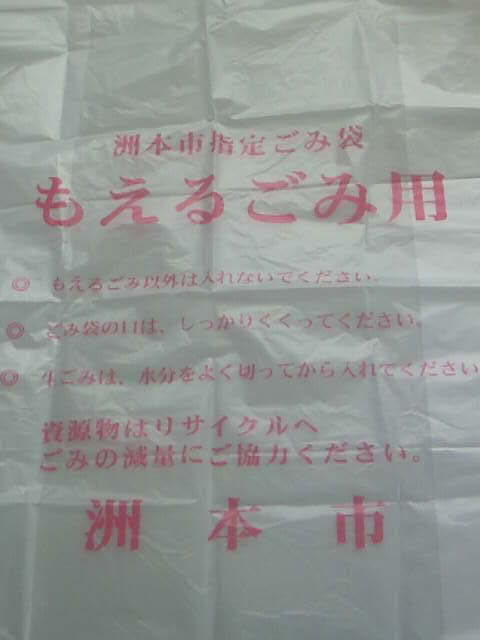 洲本市指定ごみ袋
もえるごみ用
◎ もえるごみ以外は入れないでください。
◎ ごみ袋の口は、しっかりくくってください。
◎ 生ごみは、水分をよく切ってから入れてください
資源物はリサイクルへ
ごみの減量にご協力ください。
洲本市